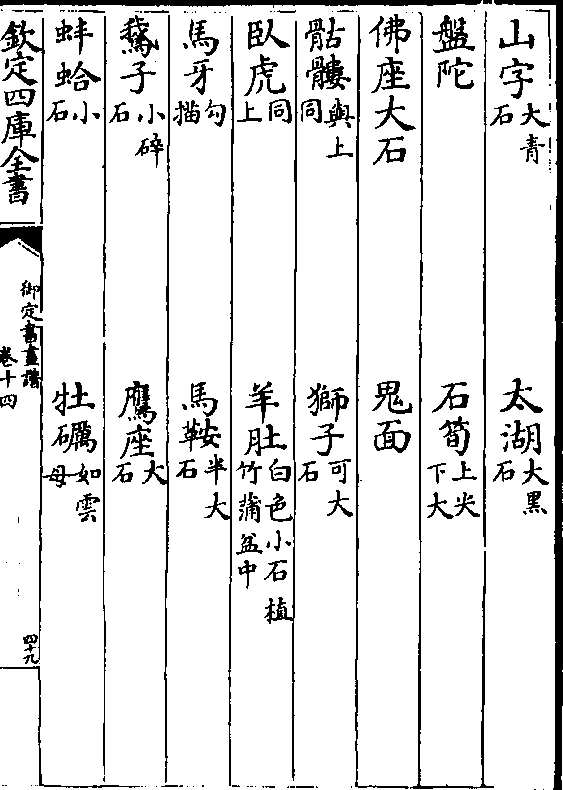 山字大青石　太湖大黑石
盤陀　石筍上尖下大
佛座大石　鬼面
骷髏與上同　獅子可大石
臥虎同上　羊肚白色小石植竹蒲盆中
馬牙勾描　馬鞍半大石
鵞子小碎石　鷹座大石
蚌蛤小石　牡礪如雲母
欽定四庫全書
御定書畫譜
卷十四
四十九